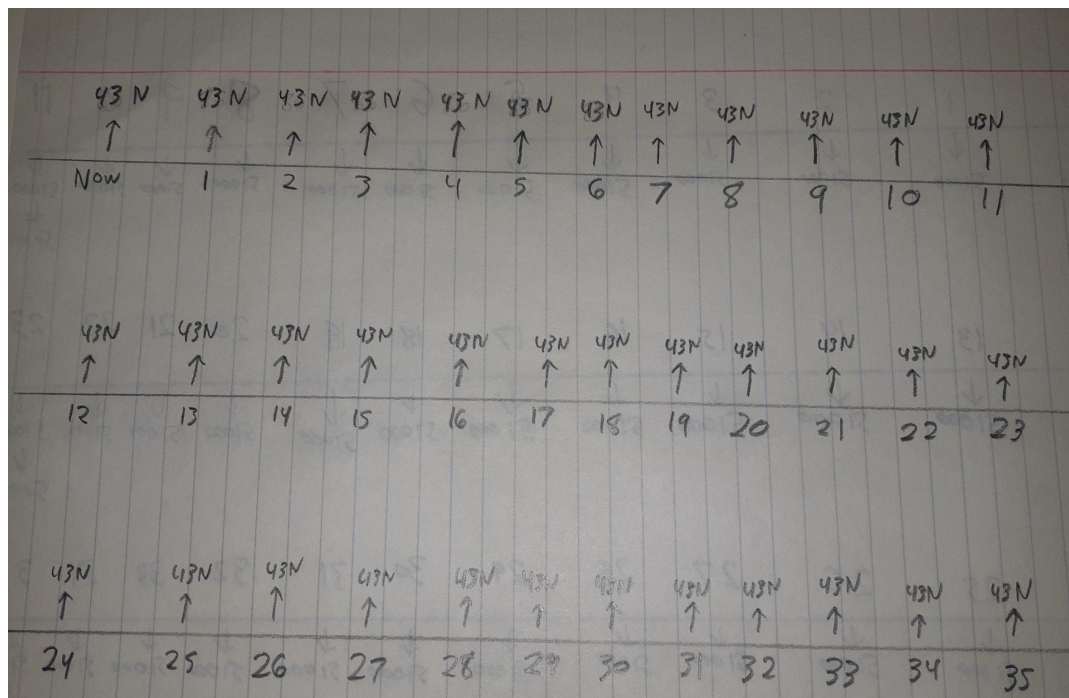 43 N 43 N 43 N 43 N 43 N 43 N 43N 43N 43N 43N 43N 43N
Now 1 2 3 4 5 6 7 8 9 10 11
43N 43N 43N 43N 43N 43N 43N 43N 43N 43N 43N 43N
12 13 14 15 16 17 18 19 20 21 22 23
43N 43N 43N 43N 43N 43N 43N 43N 43N 43N 43N 43N
24 25 26 27 28 29 30 31 32 33 34 35